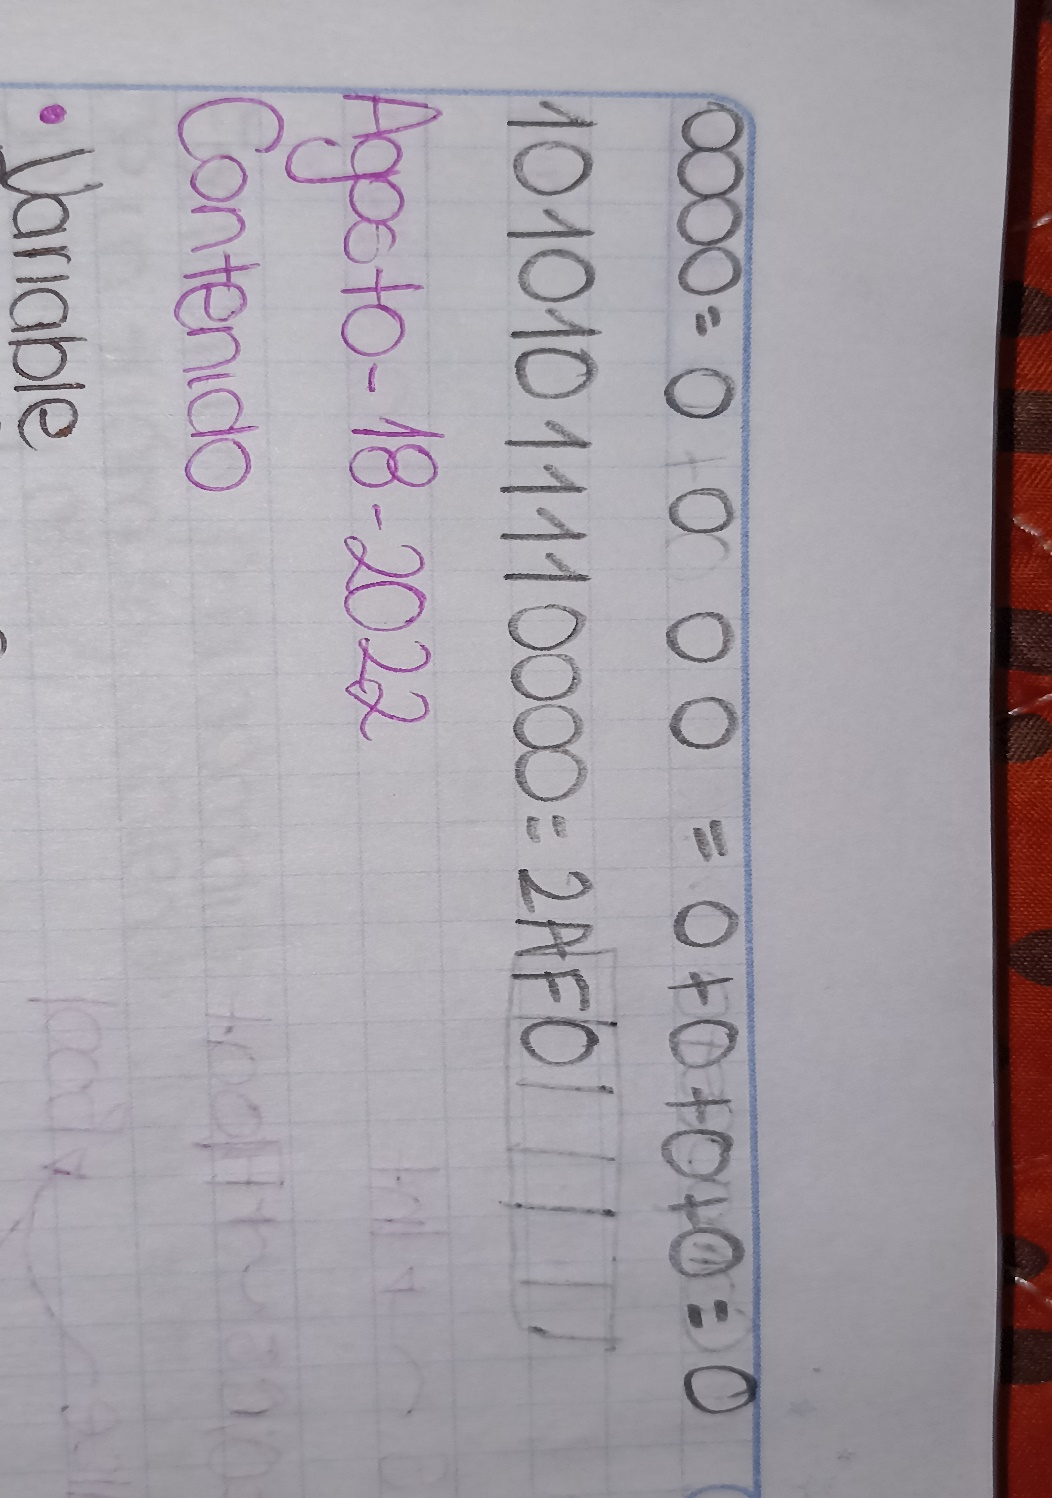 0000 = 0 0 0 0 = 0+0+0+0=0
10101011110000 = 2AF0
Agosto-18-2022
Contenido
• Variable